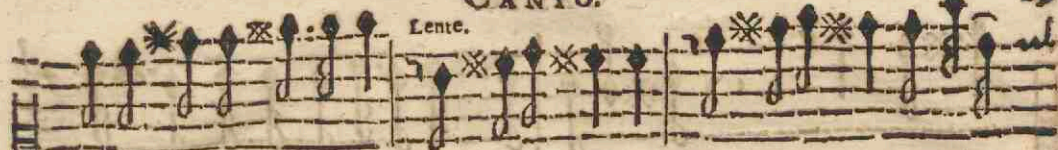 CANTO.
Lente.